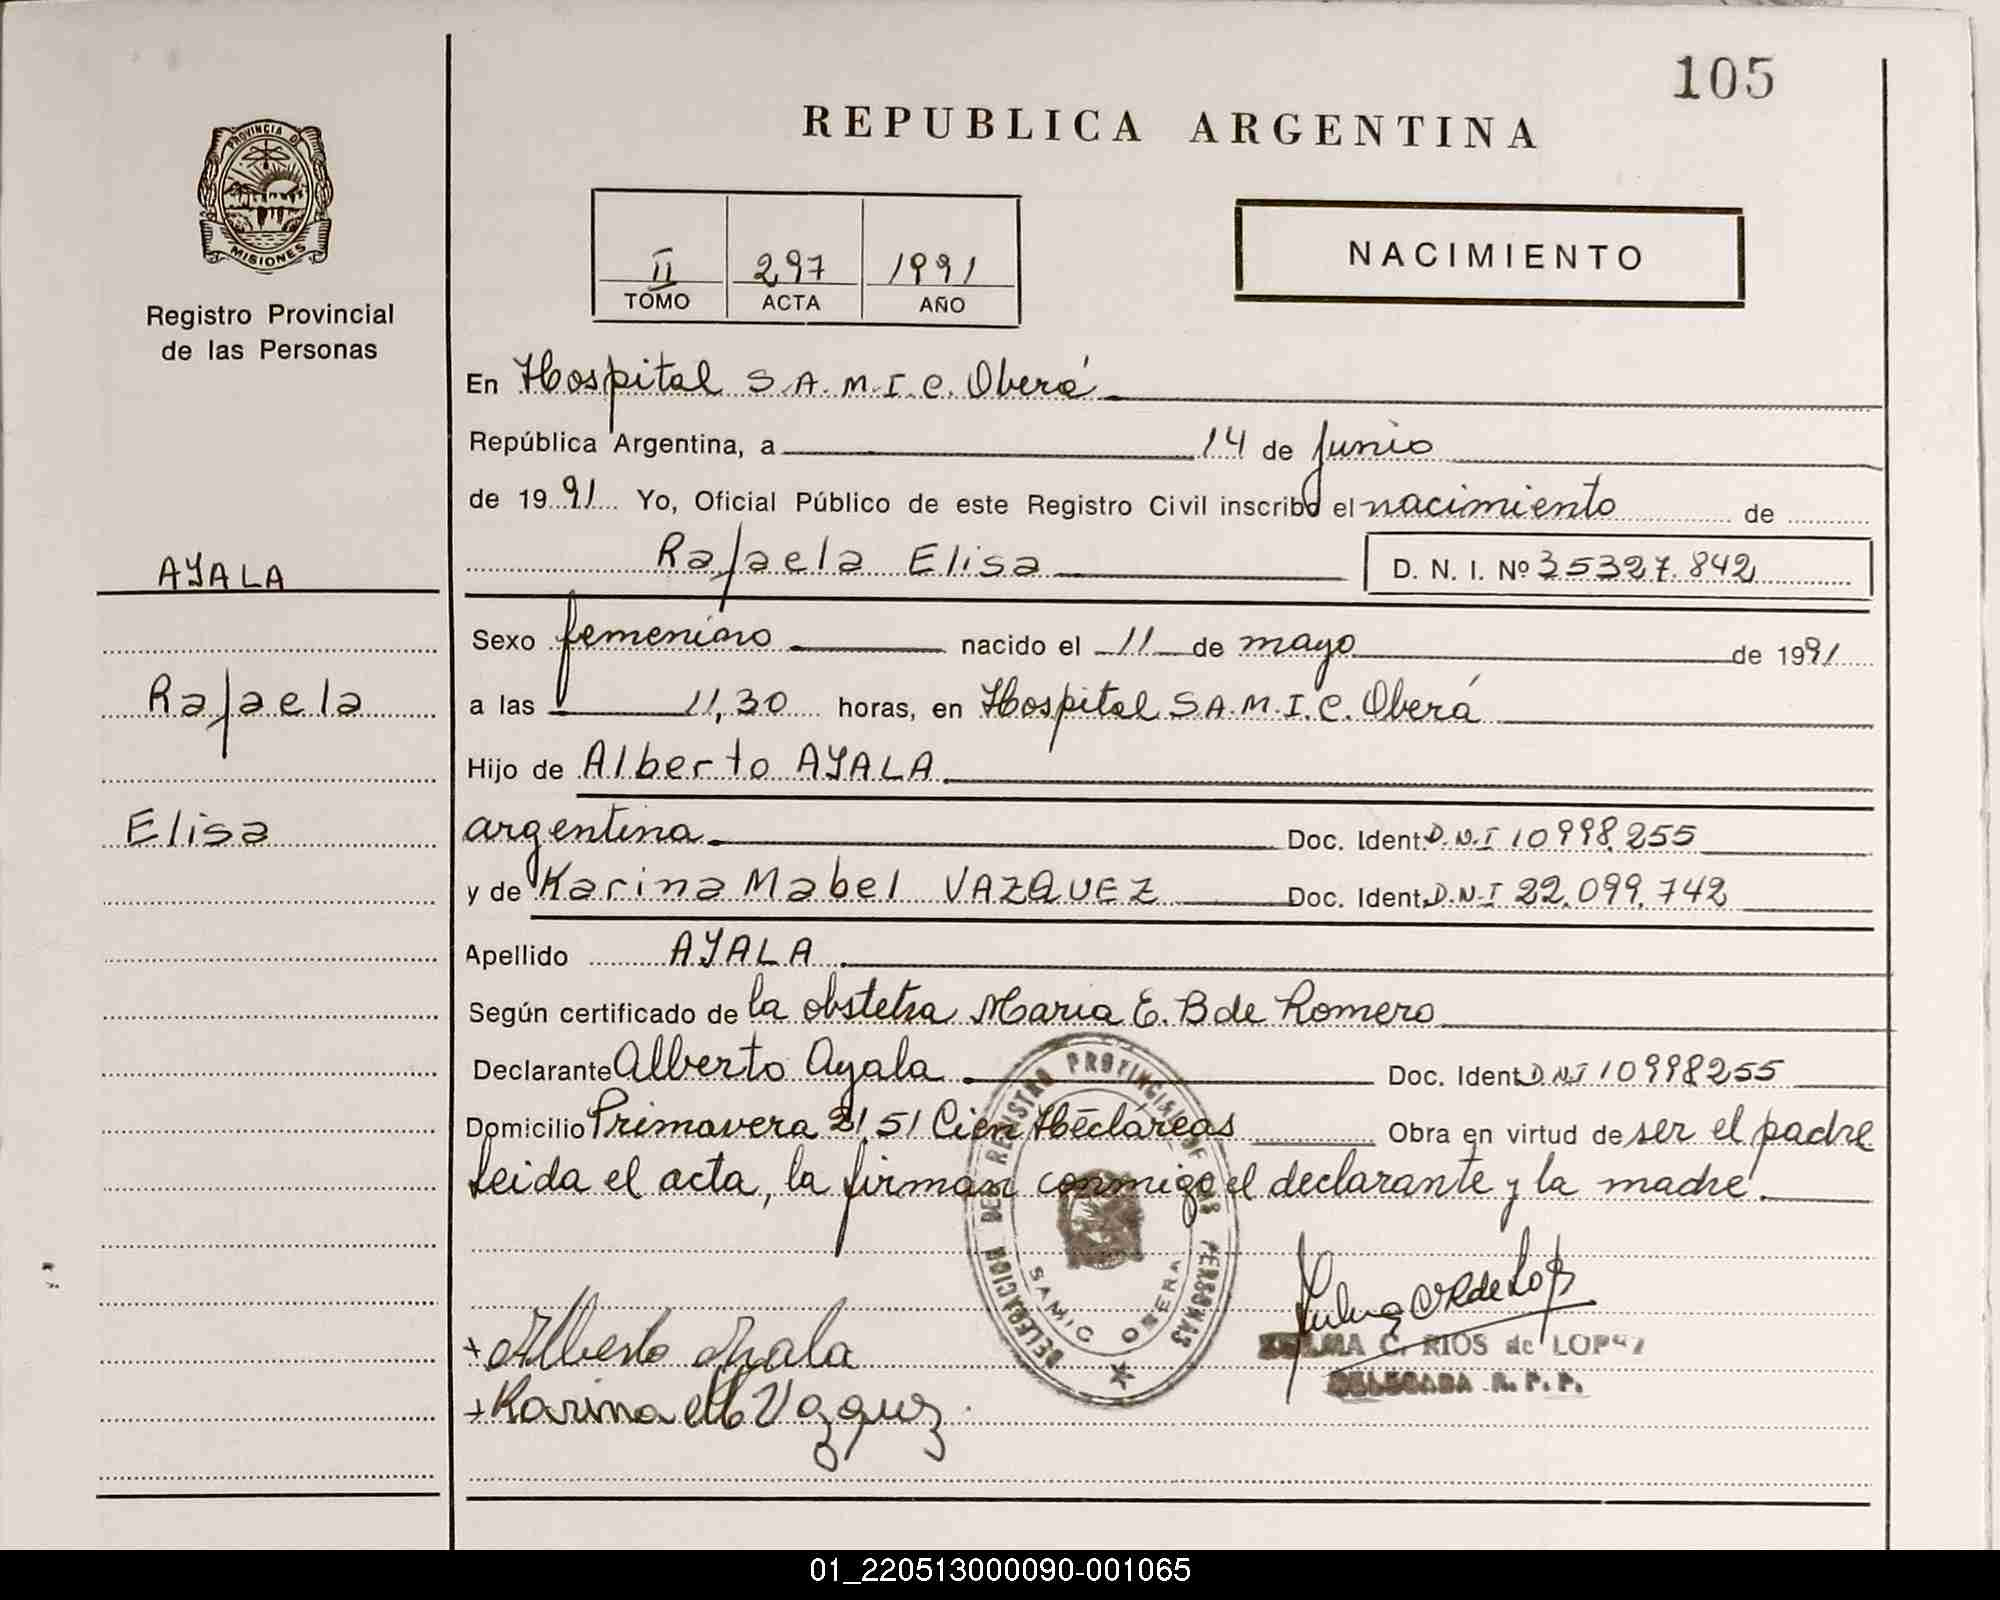 105
REPUBLICA ARGENTINA
PROVINCIA DE MISIONES
Registro Provincial
de las Personas
II 297 1991
TOMO ACTA AÑO
NACIMIENTO
En Hospital S.A.M.I.C. Oberá
República Argentina, a 14 de Junio
de 1991 Yo, Oficial Público de este Registro Civil inscribo el nacimiento de
Rafaela Elisa D. N. I. Nº 35327.842
AYALA
Rafaela
Elisa
Sexo femenino nacido el 11 de mayo de 1991
a las 11,30 horas, en Hospital S.A.M.I.C. Oberá
Hijo de Alberto AYALA
argentina Doc. Ident. D.N.I 10998.255
y de Karina Mabel VAZQUEZ Doc. Ident. D.N.I 22.099.742
Apellido AYALA
Según certificado de la obstetra Maria E. B de Romero
Declarante Alberto Ayala Doc. Ident. DNI 10998255
Domicilio Primavera 2151 Cien Hectáreas Obra en virtud de ser el padre
Leida el acta, la firman conmigo el declarante y la madre.
DELEGACION DEL REGISTRO PROVINCIAL DE LAS PERSONAS
SAMIC OBERA
+ Alberto Ayala
+ Karina M Vazquez.
C. RIOS de LOPEZ
DELEGADA R. P. P.
01_220513000090-001065